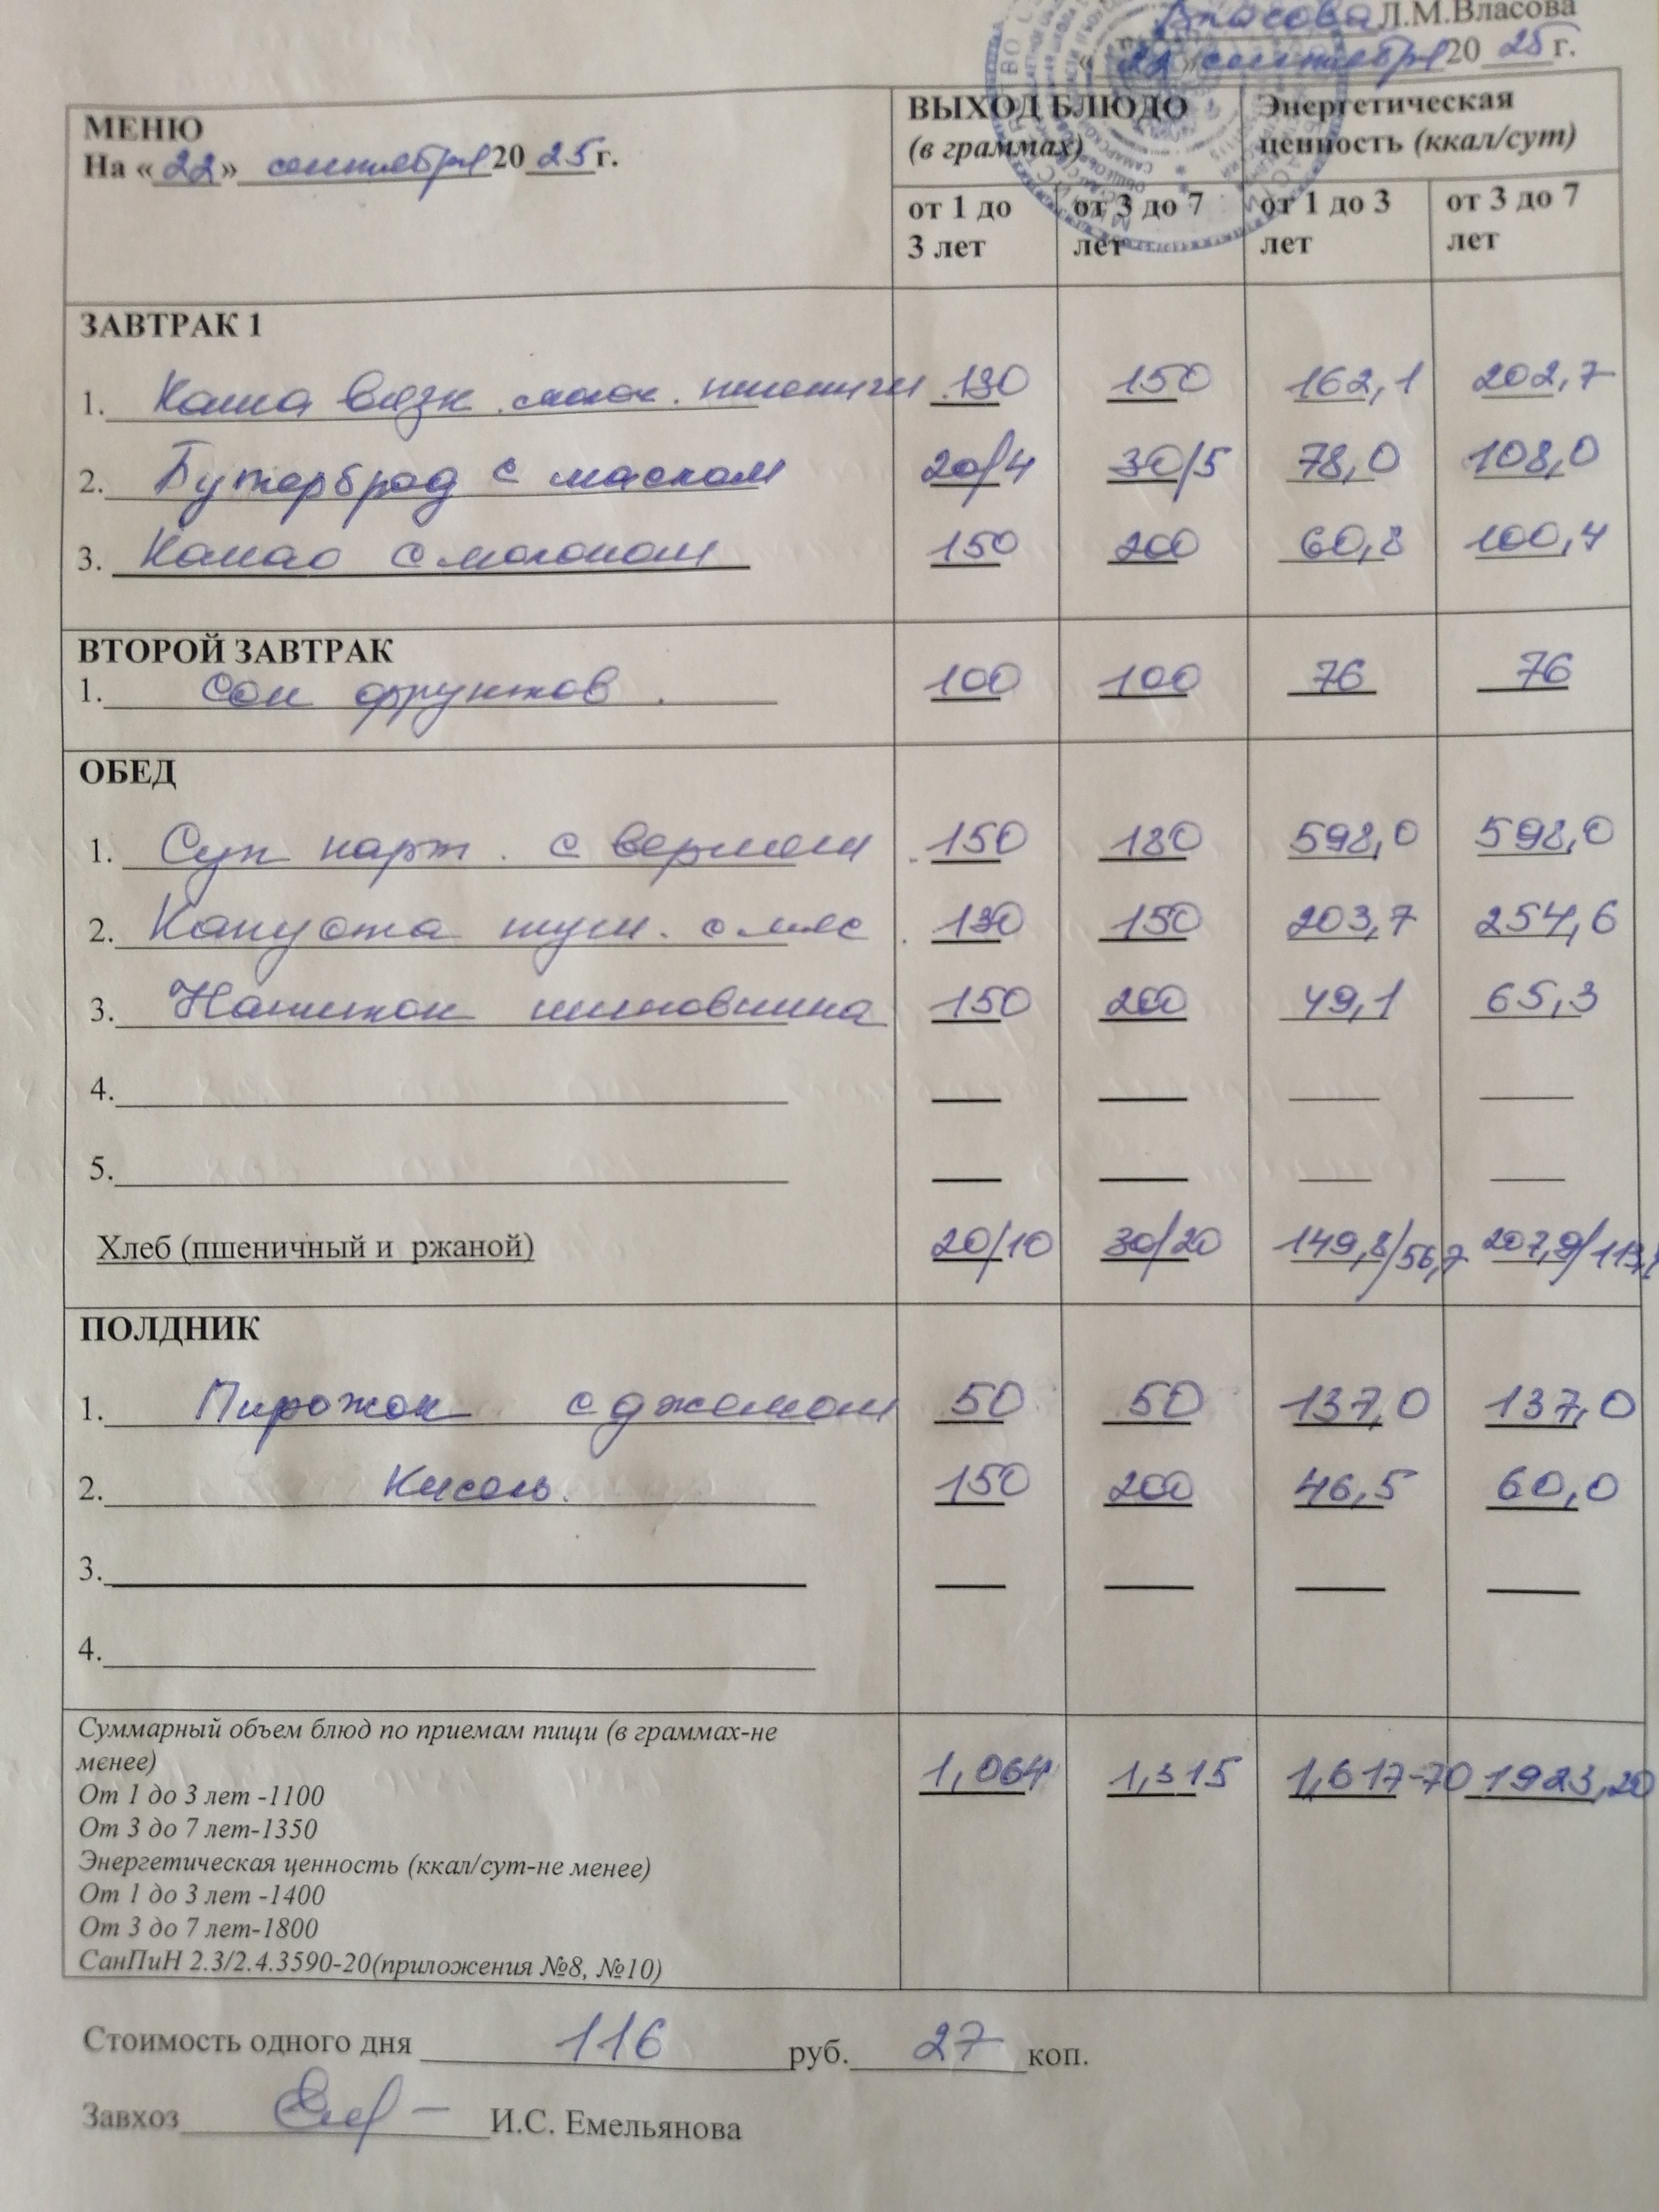 Власова Л.М.Власова
« 22 » сентября 20 25 г.
МЕНЮ
На « 22 » сентября 20 25 г.
ВЫХОД БЛЮДО
(в граммах)
Энергетическая
ценность (ккал/сут)
от 1 до
3 лет
от 3 до 7
лет
от 1 до 3
лет
от 3 до 7
лет
ЗАВТРАК 1
1. Каша вязк. молоч. пшеничн 130 150 162,1 202,7
2. Бутерброд с маслом 20/4 30/5 78,0 108,0
3. Какао с молоком 150 200 60,8 100,4
ВТОРОЙ ЗАВТРАК
1. Сок фруктов. 100 100 76 76
ОБЕД
1. Суп карт. с вермеш 150 180 598,0 598,0
2. Капуста туш. с мяс 130 150 203,7 254,6
3. Напиток шиповника 150 200 49,1 65,3
4.
5.
Хлеб (пшеничный и ржаной) 20/10 30/20 149,8/56,7 207,9/113,
ПОЛДНИК
1. Пирожок с джемом 50 50 137,0 137,0
2. Кисель. 150 200 46,5 60,0
3.
4.
Суммарный объем блюд по приемам пищи (в граммах-не
менее)
От 1 до 3 лет -1100
От 3 до 7 лет-1350
Энергетическая ценность (ккал/сут-не менее)
От 1 до 3 лет -1400
От 3 до 7 лет-1800
СанПиН 2.3/2.4.3590-20(приложения №8, №10)
1,064 1,315 1,617-70 1923,20
Стоимость одного дня 116 руб. 27 коп.
Завхоз И.С. Емельянова